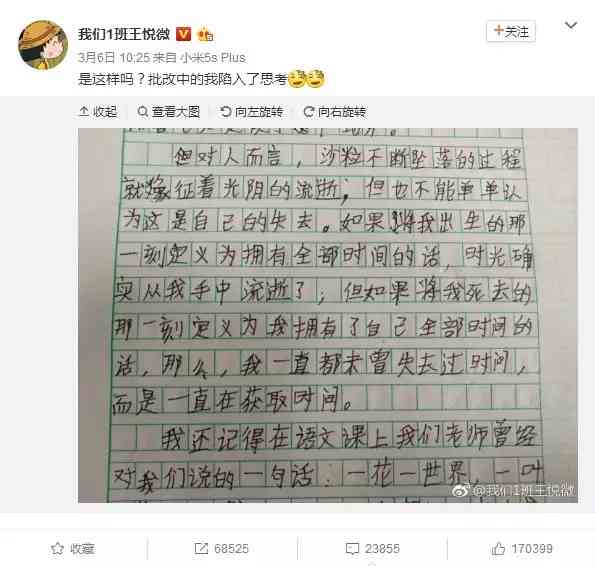 我们1班王悦微
+关注
3月6日 10:25 来自 小米5s Plus
是这样吗？批改中的我陷入了思考
收起 查看大图 向左旋转 向右旋转
但对人而言，沙粒不断坠落的过程
就像征着光阴的流逝；但也不能单单认
为这是自己的失去。如果将我出生的那
一刻定义为拥有全部时间的话，时光确
实从我手中流逝了；但如果将我死去的
那一刻定义为我拥有了自己全部时间的
话，那么，我一直都未曾失去过时间，
而是一直在获取时间。
我还记得在语文课上我们老师曾经
对我们说的一句话：一花一世界，一叶
@我们1班王悦微
收藏 68525 23855 170399